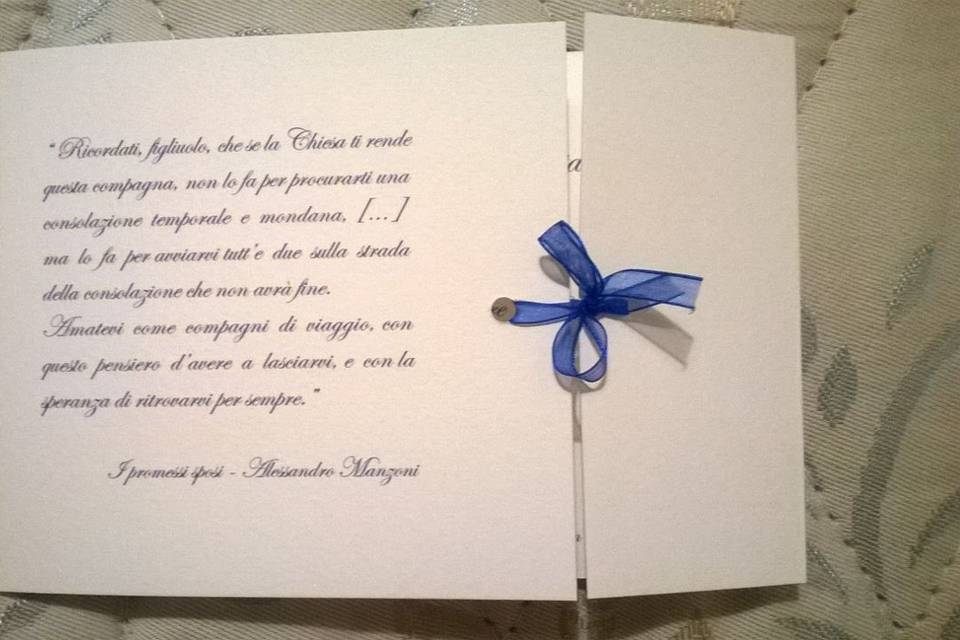 “Ricordati, figliuolo, che se la Chiesa ti rende
questa compagna, non lo fa per procurarti una
consolazione temporale e mondana, [...]
ma lo fa per avviarvi tutt'e due sulla strada
della consolazione che non avrà fine.
Amatevi come compagni di viaggio, con
questo pensiero d'avere a lasciarvi, e con la
speranza di ritrovarvi per sempre.”
I promessi sposi - Alessandro Manzoni
a
e